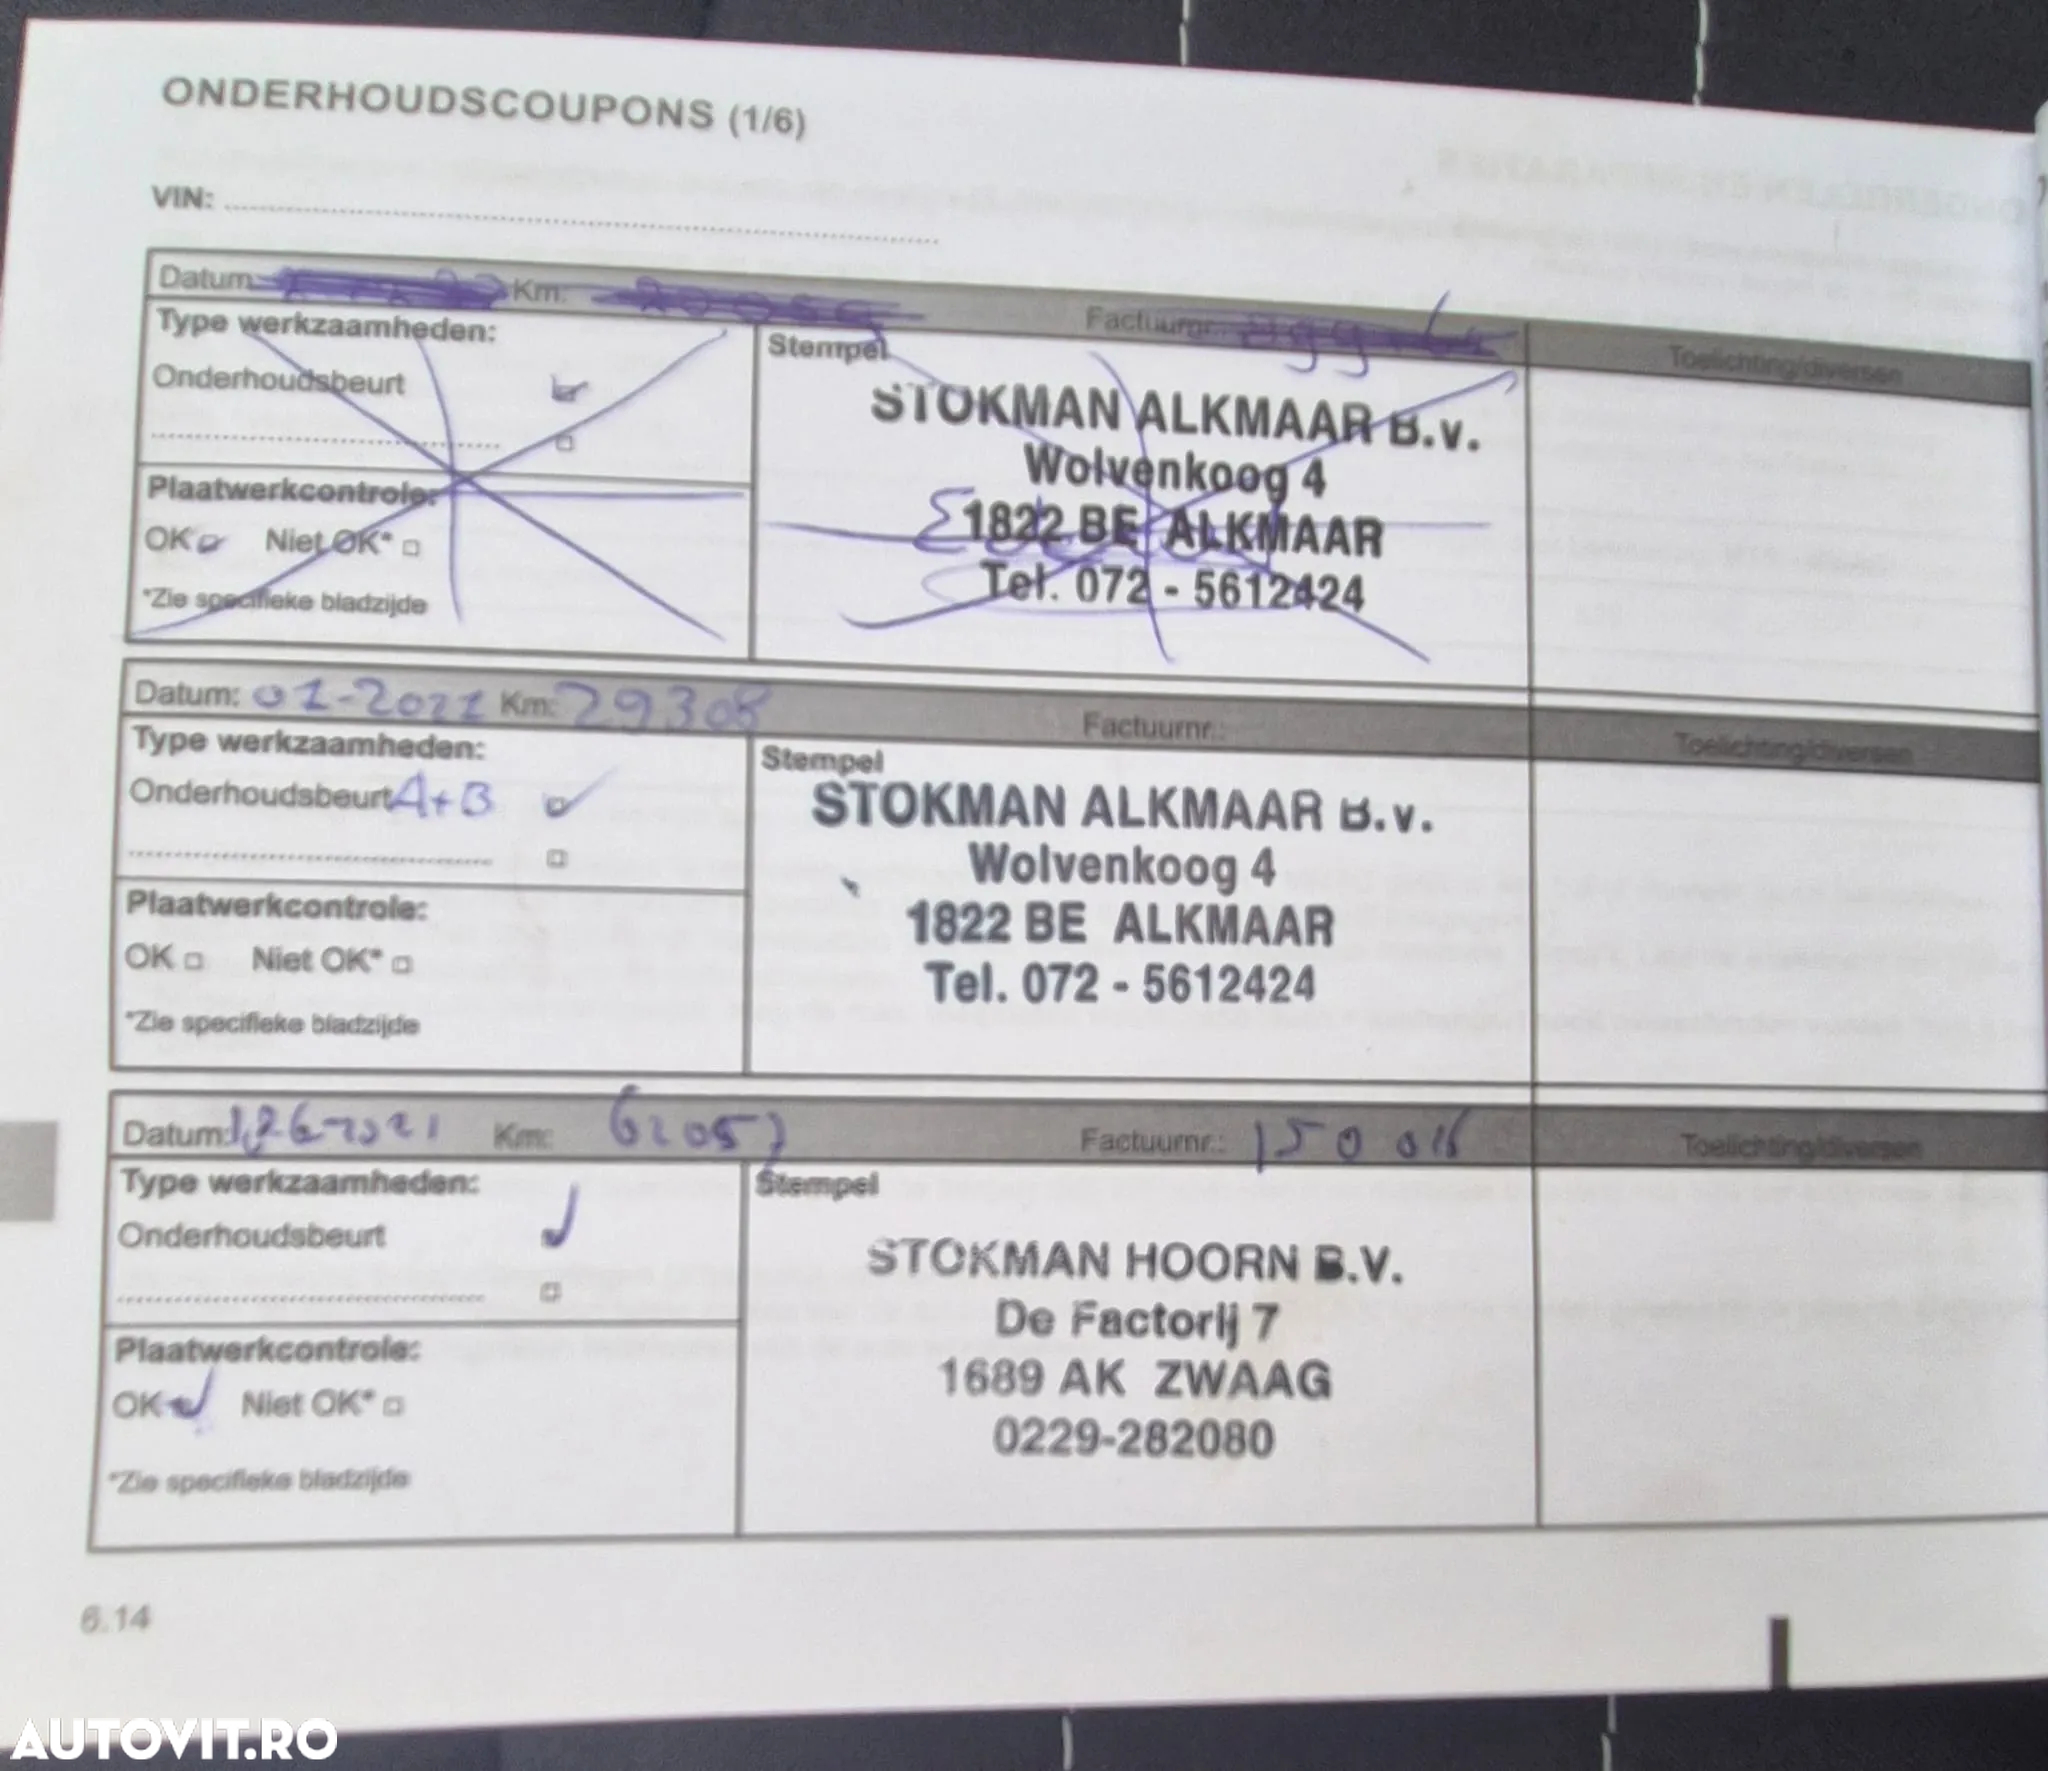 ONDERHOUDSCOUPONS (1/6)
VIN:
Datum: Km: Factuurnr.: Toelichting/diversen
Type werkzaamheden:
Onderhoudsbeurt
Plaatwerkcontrole:
OK Niet OK*
*Zie specifieke bladzijde
Stempel
STOKMAN ALKMAAR B.v.
Wolvenkoog 4
1822 BE ALKMAAR
Tel. 072 - 5612424
Datum: 01-2021 Km: 29308 Factuurnr.: Toelichting/diversen
Type werkzaamheden:
Onderhoudsbeurt A+B
Plaatwerkcontrole:
OK Niet OK*
*Zie specifieke bladzijde
Stempel
STOKMAN ALKMAAR B.v.
Wolvenkoog 4
1822 BE ALKMAAR
Tel. 072 - 5612424
Datum: Km: 62057 Factuurnr.: Toelichting/diversen
Type werkzaamheden:
Onderhoudsbeurt
Plaatwerkcontrole:
OK Niet OK*
*Zie specifieke bladzijde
Stempel
STOKMAN HOORN B.V.
De Factorij 7
1689 AK ZWAAG
0229-282080
6.14
AUTOVIT.RO